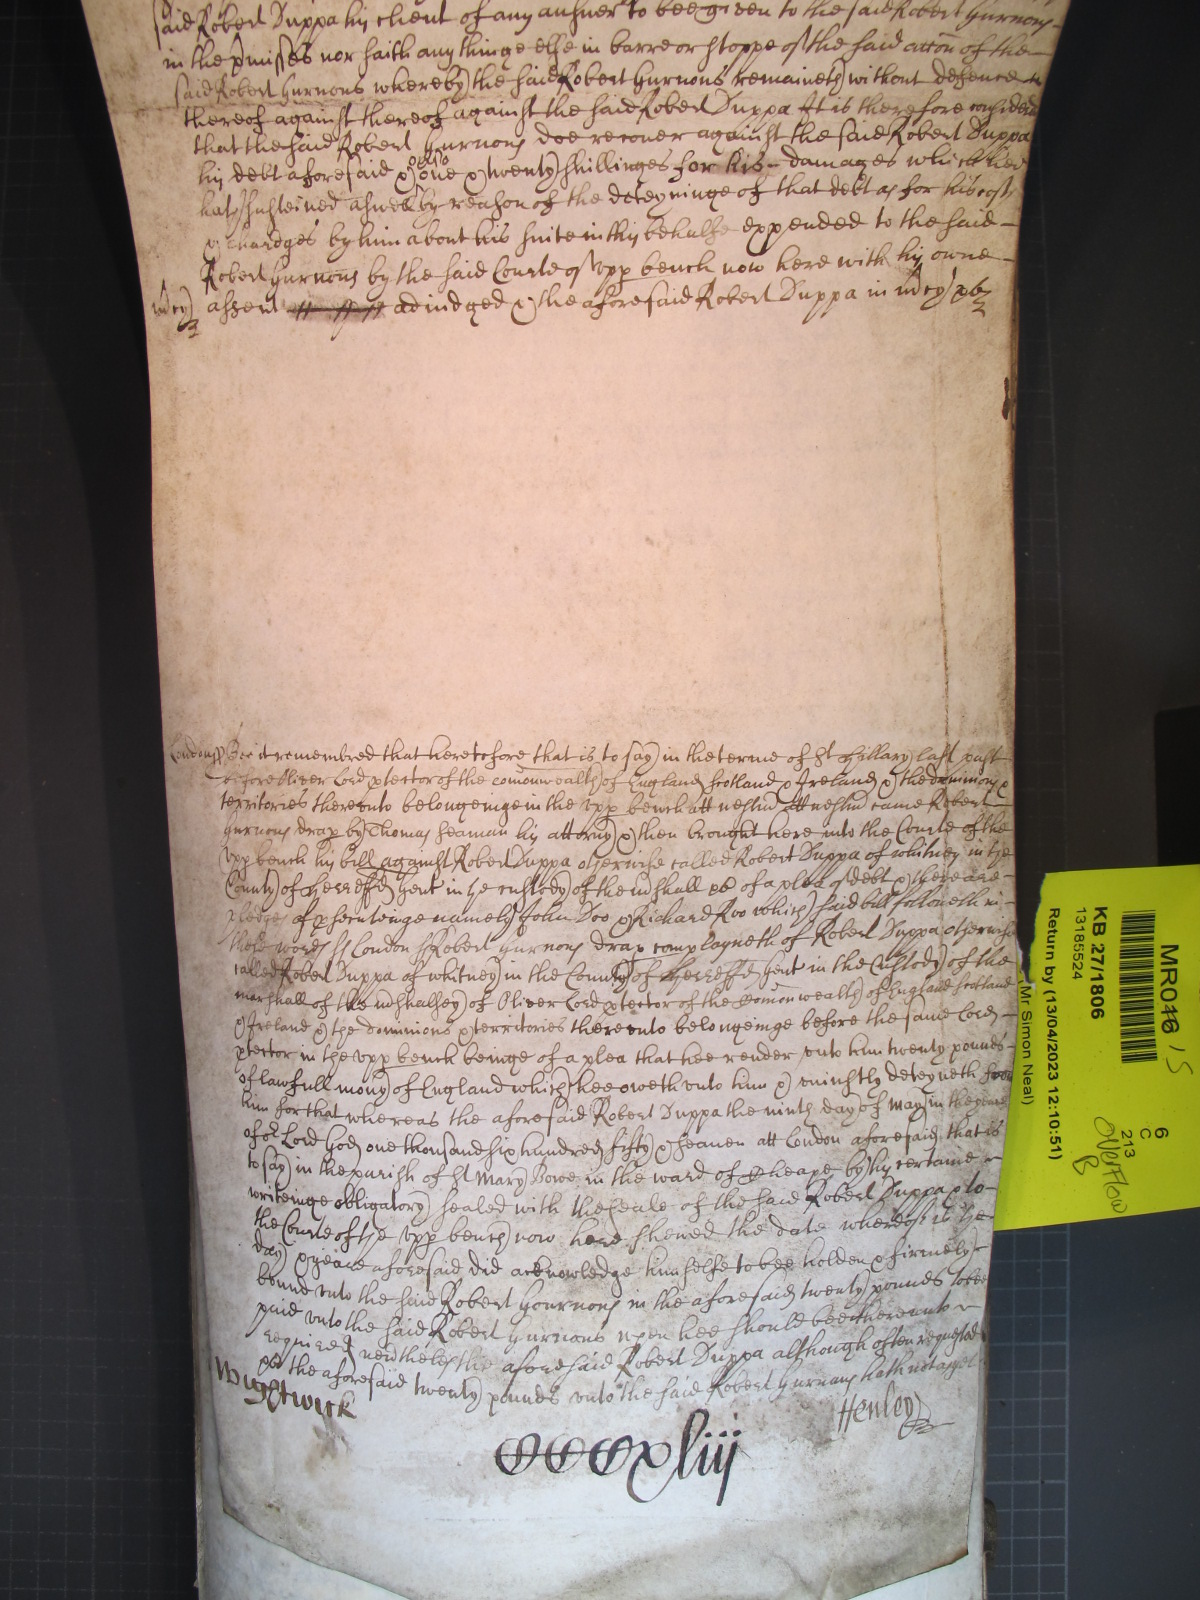 said Robert Duppa his client of any answer to bee given to the said Robert Gurnons
in the pmisses nor saith any thinge else in barre or stoppe of the said accon of the
said Robert Gurnons whereby the said Robert Gurnons remaineth without defence
thereof against thereof against the said Robert Duppa It is therefore considered
that the said Robert Gurnons doe recover against the said Robert Duppa
his debt aforesaid & one & twenty shillinges for his damages which hee
hath susteined aswell by reason of the deteyninge of that debt as for his costs
& chardges by him about his suite in this behalfe expended to the said
Robert Gurnons by the said Courte of upp bench now here with his owne
mcy assent adiudged & the aforesaid Robert Duppa in mcy &c
London ss Bee it remembred that heretofore that is to say in the terme of St Hillary last past
before Oliver Lord ptector of the comonwealth of England Scotland & Ireland & the dominions &
territories thereunto belongeinge in the upp bench att westm att westm came Robert
Gurnons drap by Thomas Seaman his attorny & then brought here into the Courte of the
upp bench his bill against Robert Duppa otherwise called Robert Duppa of whitney in the
County of Herreff gent in the custody of the mshall &c of a plea of debt & there are
pledges of psecuteinge namely John Doo & Richard Roo which said bill followeth in
these words ss London ss Robert Gurnons drap complayneth of Robert Duppa otherwise
called Robert Duppa of whitney in the County of Herreff gent in the Custody of the
marshall of the mshalsey of Oliver Lord ptector of the Comonwealth of England Scotland
& Ireland & the dominions & territories thereunto belongeinge before the same Lord
ptector in the upp bench beinge of a plea that hee render unto him twenty pounds
of lawfull mony of England which hee oweth unto him & uniustly deteyneth from
him for that whereas the aforesaid Robert Duppa the ninth day of May in the yeare
of or Lord God one thousand six hundred fifty & seaven att London aforesaid that is
to say in the parish of St Mary Bowe in the ward of Cheape by his certaine
writeinge obligatory sealed with the seale of the said Robert Duppa & to
the Courte of the upp bench now here shewed the date whereof is the
day & yeare aforesaid did acknowledge himselfe to bee holden & firmely
bound unto the said Robert Gournons in the aforesaid twenty pounds to bee
paid unto the said Robert Gurnons when hee should bee thereunto
required neverthelesse the aforesaid Robert Duppa although often requested
&c the aforesaid twenty pounds unto the said Robert Gurnons hath not as yet
Wightwick
Henley
CCCxliij
MR046 15
KB 27/1806
13185524
Return by (13/04/2023 12:10:51)
Mr Simon Neal)
6
C
213
Overflow
B